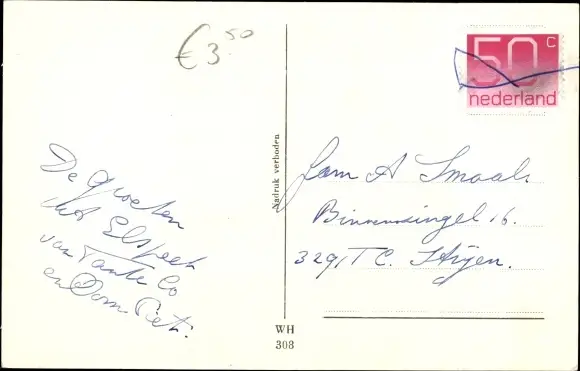 €3.50
50c
nederland
De groeten
uit Elspeet
van Tante Co
en Oom Piet.
Nadruk verboden
Fam A Smaal.
Binnensingel 16.
3291 TC. Strijen.
WH
308